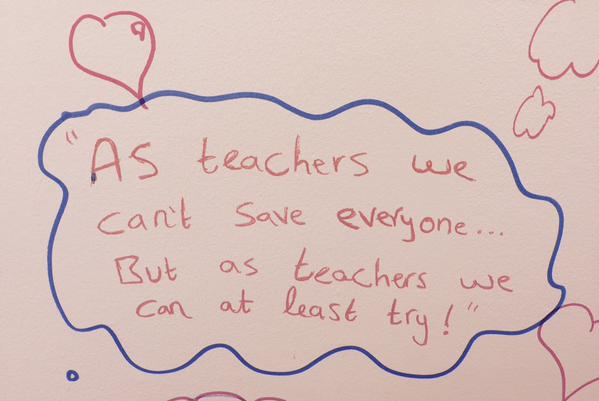 "As teachers we
can't save everyone...
But as teachers we
can at least try!"